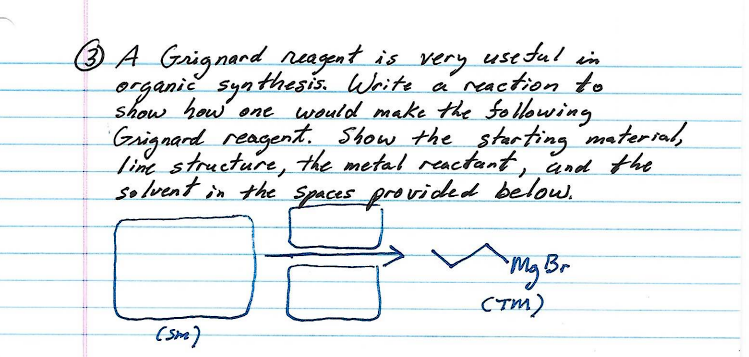 ③ A Grignard reagent is very useful in
organic synthesis. Write a reaction to
show how one would make the following
Grignard reagent. Show the starting material,
line structure, the metal reactant, and the
solvent in the spaces provided below.
MgBr
(TM)
(SM)